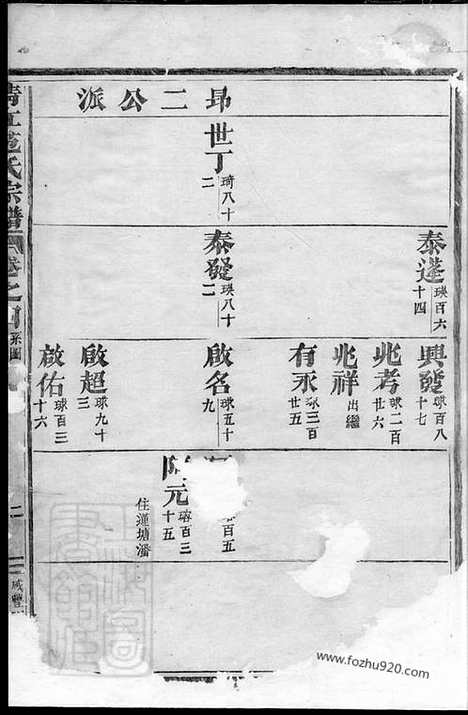 昂二公派
世丁
琦八十二
泰蓬
瑛百六十四
泰發
瑛八十二
興發
球百八十七
兆考
球二百廿六
兆祥
出繼
有永
球三百廿五
啟名
球五十九
啟超
球九十三
啟佑
球百三十六
百五
元
百三十五
住蓮塘潘
氏宗譜
卷之
系圖
二
咸豐
www.fozhu920.com